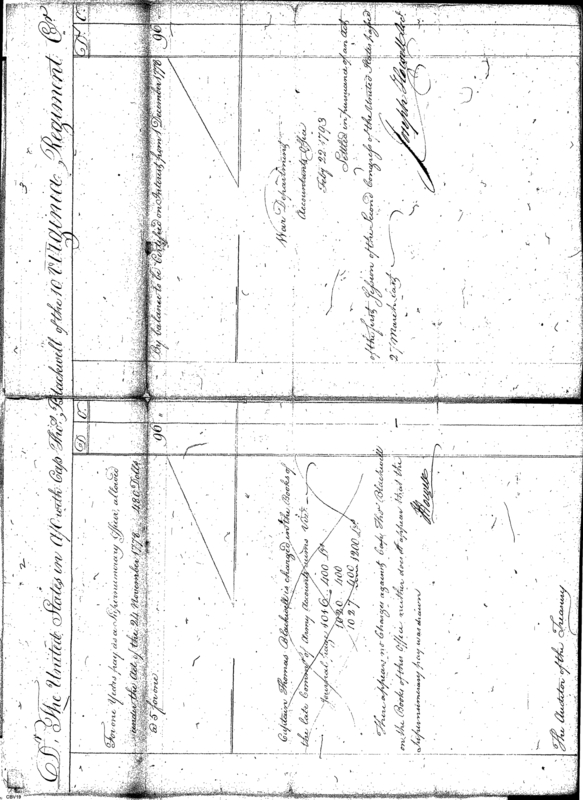 Dr. The United States in A/C with Cap Thos. Blackwell of the 10 Virginia Regiment Cr
D C
For one Years pay as a Supernumerary Officer, allowed
under the Act of the 24 November 1778 480 Dolls
@ 5 for one 90
Captain Thomas Blackwell is charged in the Books of
the late Commrs. of Army Accounts
Journal page 1016 400 Drs
1020 400
1027 400 1200 Drs
There appears no Charges against Cap. Thos. Blackwell
on the Books of this Office neither does it appear that the
Supernumerary pay was drawn
JHowell
The Auditor of the Treasury
Drs C.
By balance to be Certified on Interest from 1 December 1778 90
War Department
Accountants Office
Feby 22 1793
Settled in pursuance of an act
of the first Session of the second Congress of the United States, passed
27 March last
Joseph Howell